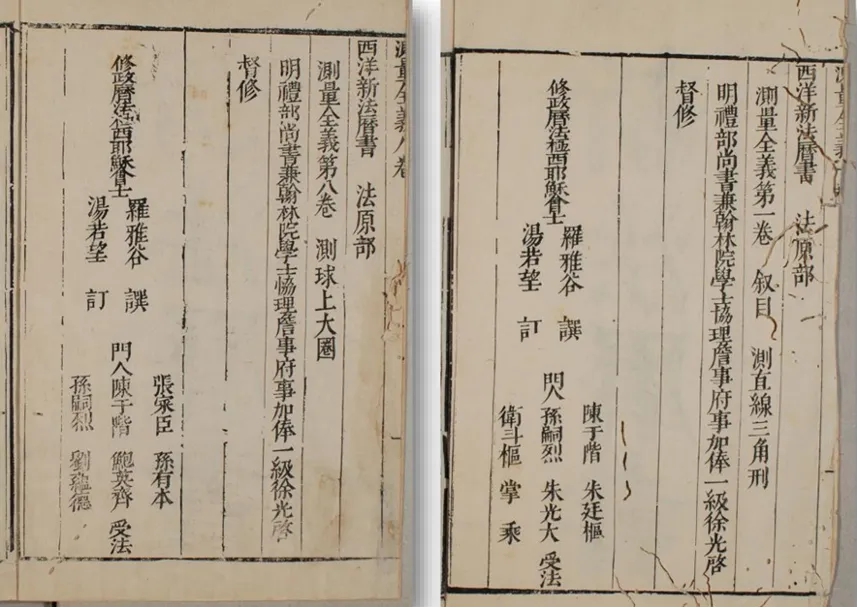 測量全義
西洋新法曆書 法原部
測量全義第一卷 叙目 測直線三角刑
明禮部尚書兼翰林院學士協理詹事府事加俸一級徐光啓
督修
修政曆法極西耶穌會士
羅雅谷 譔
湯若望 訂
陳于階 朱廷樞
門人孫嗣烈 朱光大 受法
衛斗樞 掌 乘
測量全義八卷
西洋新法曆書 法原部
測量全義第八卷 測球上大圈
明禮部尚書兼翰林院學士協理詹事府事加俸一級徐光啓
督修
修政曆法極西耶穌會士
羅雅谷 譔
湯若望 訂
張寀臣 孫有本
門人陳于階 鮑英齊 受法
孫嗣烈 劉蘊德